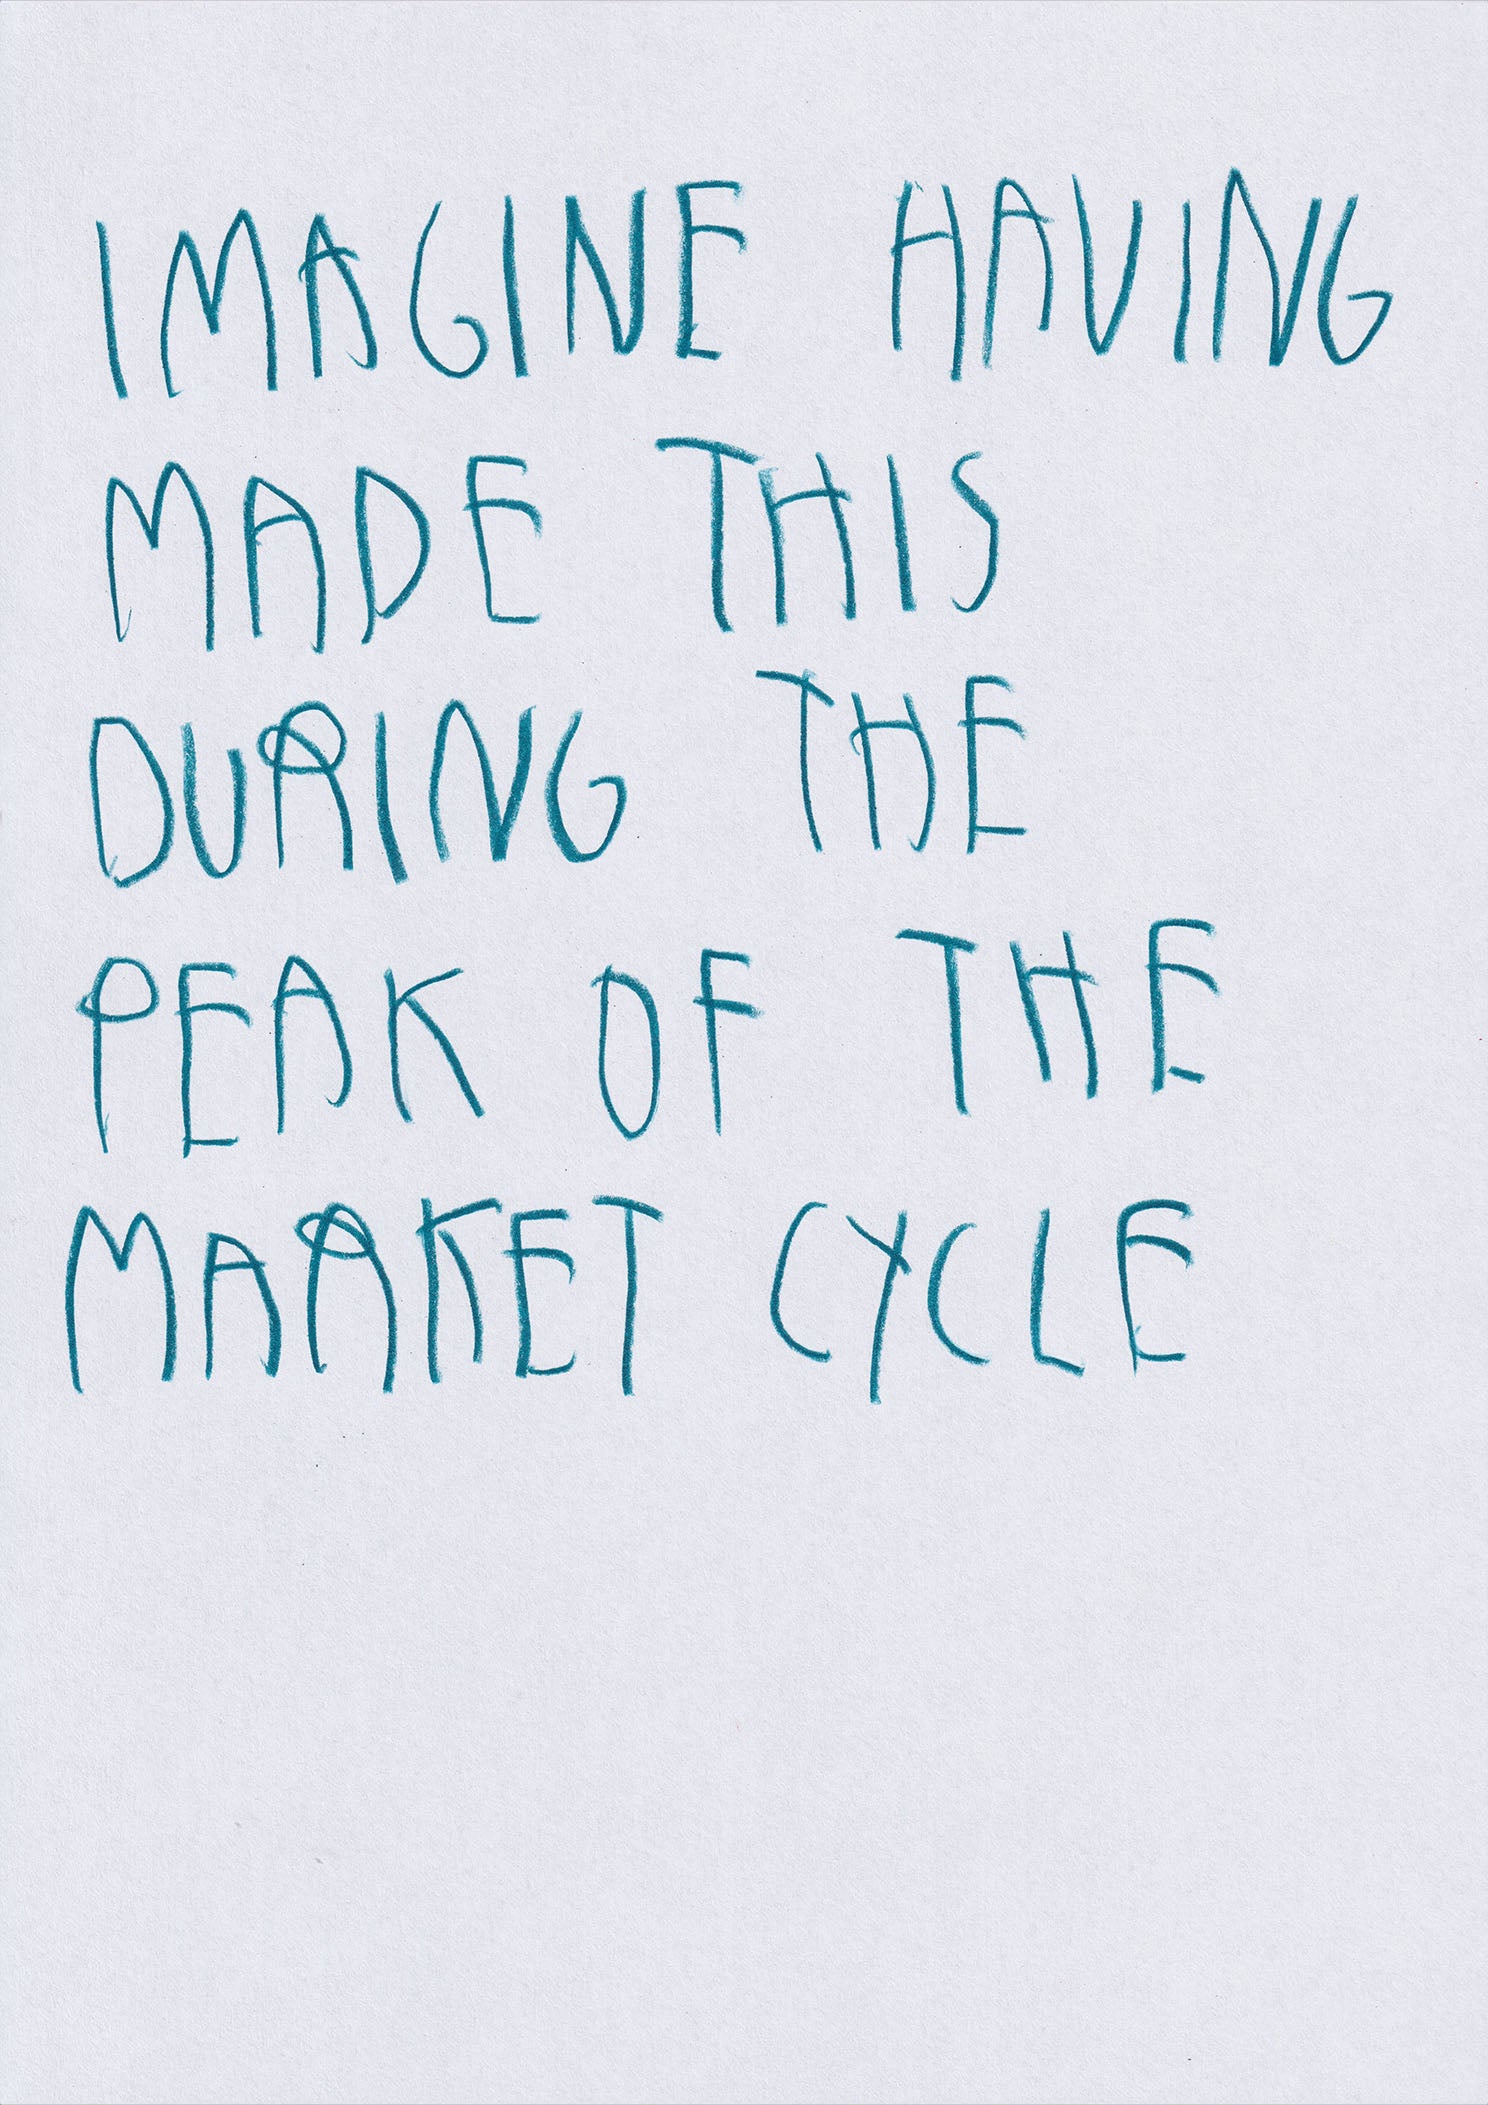 IMAGINE HAVING
MADE THIS
DURING THE
PEAK OF THE
MARKET CYCLE